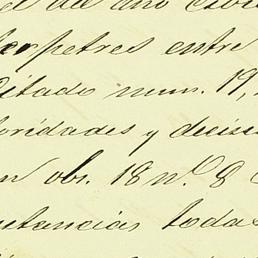 el del año
terpetres entre
citado num. 19,
toridades y decisi
n obs. 18 nº 8
stancias todas